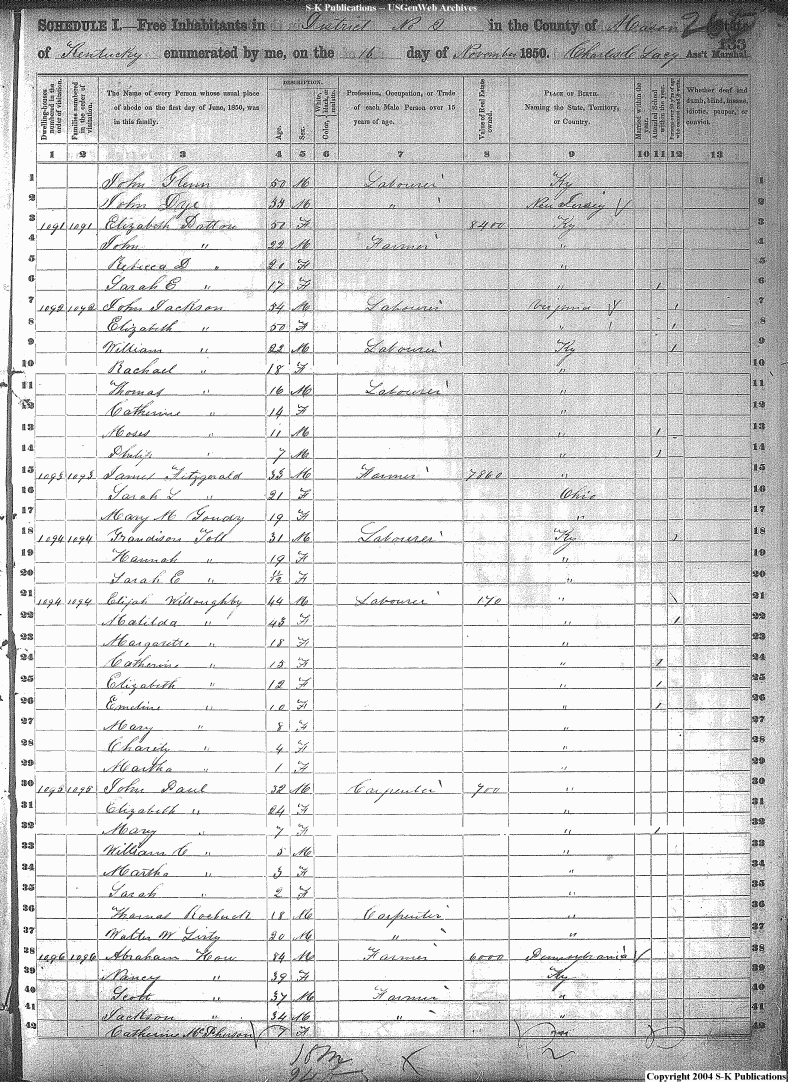 S-K Publications -- USGenWeb Archives
SCHEDULE I.—Free Inhabitants in District No 2 in the County of Mason State
of Kentucky enumerated by me, on the 16 day of November 1850. Charles C Lacy Ass't Marshal.
133
Dwelling-houses numbered in the order of visitation.
Families numbered in the order of visitation.
The Name of every Person whose usual place of abode on the first day of June, 1850, was in this family.
DESCRIPTION.
Age.
Sex.
White, black, or mulatto.
Color,
Profession, Occupation, or Trade of each Male Person over 15 years of age.
Value of Real Estate owned.
PLACE OF BIRTH.
Naming the State, Territory, or Country.
Married within the year.
Attended School within the year.
Whether deaf and dumb, blind, insane, idiotic, pauper, or convict.
1 2 3 4 5 6 7 8 9 10 11 12 13
1 John Glenn 50 M Labourer Ky 1
2 John Dye 33 M " New Jersey 2
3 1091 1091 Elizabeth Dattow 50 F 8400 Ky 3
4 John " 22 M Farmer " 4
5 Rebecca D " 20 F " 5
6 Sarah E " 17 F " 1 6
7 1092 1092 John Jackson 54 M Labourer Virginia 1 7
8 Elizabeth " 50 F " 1 8
9 William " 22 M Labourer Ky 1 9
10 Rachael " 18 F " 10
11 Thomas " 16 M Labourer " 11
12 Catherine " 14 F " 12
13 Moses " 11 M " 1 13
14 Philip " 7 M " 1 14
15 1093 1093 James Fitzgerald 33 M Farmer 7860 " 15
16 Sarah L " 21 F Ohio 16
17 Mary M Goudy 19 F " 17
18 1094 1094 Grandison Toll 31 M Labourer Ky 1 18
19 Hannah " 19 F " 19
20 Sarah E " F " 20
21 1094 1094 Elijah Willoughby 44 M Labourer 170 " 1 21
22 Matilda " 43 F " 1 22
23 Margarette " 18 F " 23
24 Catherine " 15 F " 1 24
25 Elizabeth " 12 F " 1 25
26 Emeline " 10 F " 1 26
27 Mary " 8 F " 27
28 Charity " 4 F " 28
29 Martha " 1 F " 29
30 1095 1095 John Paul 32 M Carpenter 700 " 30
31 Elizabeth " 24 F " 31
32 Mary " 7 F " 1 32
33 William C " 5 M " 33
34 Martha " 3 F " 34
35 Sarah " 2 F " 35
36 Thomas Roebuck 18 M Carpenter " 36
37 Walter W 20 M " " 37
38 1096 1096 Abraham How 84 M Farmer 6000 Pennsylvania 38
39 Nancy " 39 F Ky 39
40 Scott " 37 M Farmer " 40
41 Jackson " 34 M " " 41
42 Catherine McPherson 7 F 42
Copyright 2004 S-K Publications